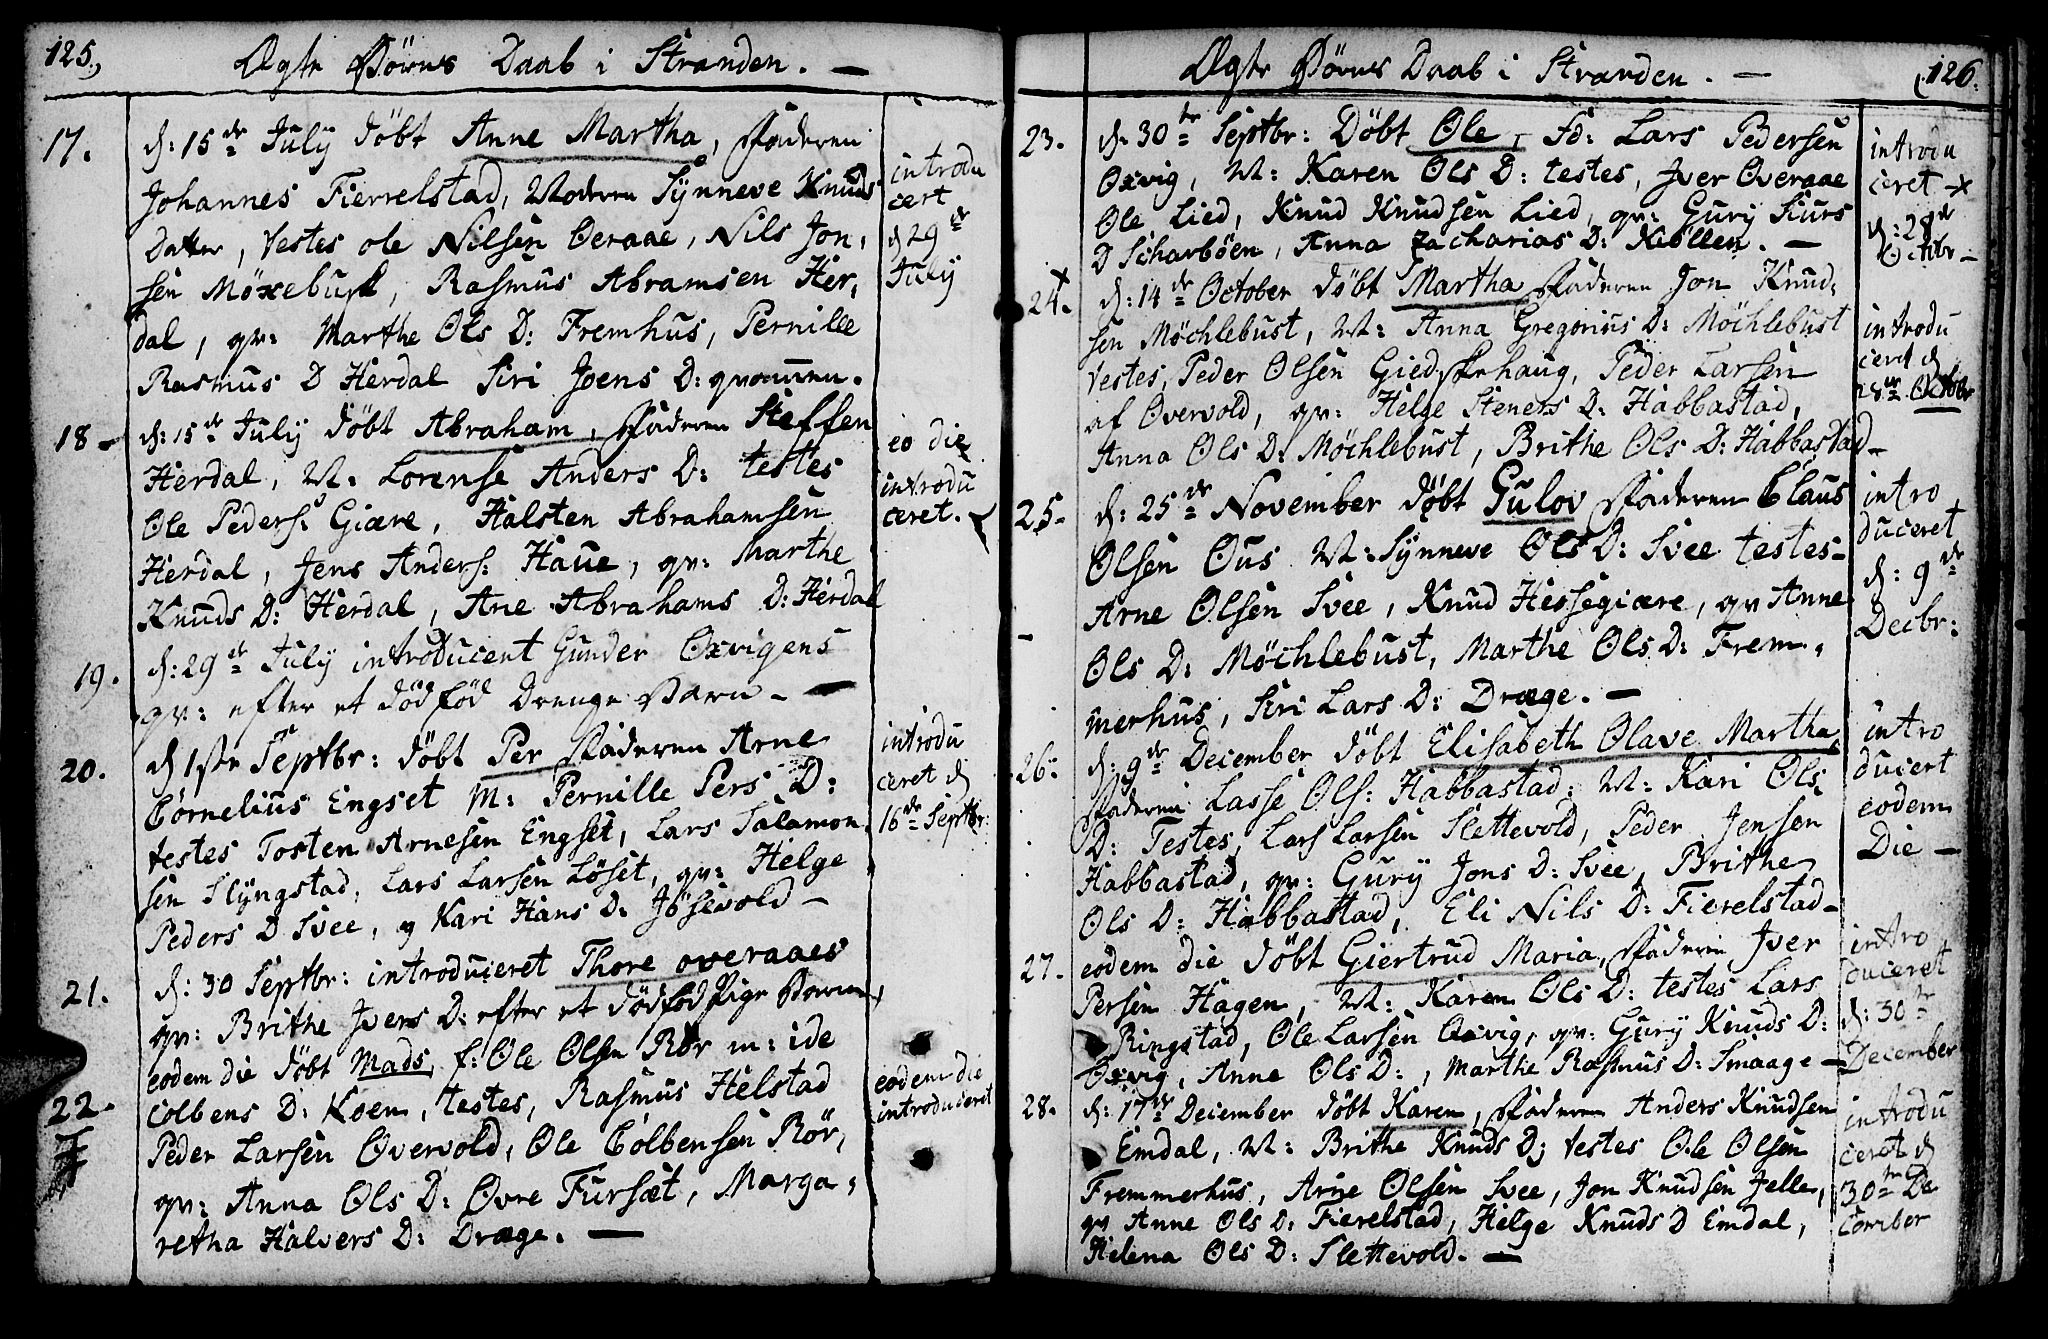 125.
Ægte Børns Daab i Stranden. —
17.
d: 15de July døbt Anne Martha, Faderen
Johannes Fierrelstad, Moderen Synneve Knuds
Datter, testes ole Nilsen Overaae, Nils Jon,
sen Möxebust, Rasmus Abramsen Her,
dal, qv: Marthe Ols D: Fremhus, Pernille
Rasmus D Herdal Siri Joens D:
introdu
cert
d 29de
July
18-
d: 15de July döbt Abraham, Faderen Steffen
Herdal, M: Lorense Anders D: testes
Ole Peders: Giære, Halsten Abrahamsen
Herdal, Jens Anders: Haue, qv: Marthe
Knuds D: Herdal, Ane Abrahams D: Herdal
eo die
introdu
ceret.
19.
d: 29de July introducert Gunder Oxvigens
qv: efter et dödföd Drenge Barn - —
20.
d 1ste Septbr: döbt Per Faderen Arne
Cornelius Engset M: Pernille Pers D:
testes Tosten Arnesen Engset, Lars Salamon
sen Slyngstad, Lars Larsen Löset, qv: Helge
Peders D Svee, og Kari Hans D: Jösevold -
introdu
ceret d
16de Septbr:
21.
d: 30 Septbr: introduceret Thore overaaes
qv: Brithe Jvers D: efter et dödföd Pige Barn,
22.
eodem die döbt Mads, f: Ole Olsen Rör m: ide
Colbens D: Koen, testes, Rasmus Helstad
Peder Larsen Overvold, Ole Colbensen Rör,
qv: Anna Ols D: Øvre Fursæt, Marga,
retha Halvers D: Dræge. —
eodem die
introduceret
Ægte Børns Daab i Stranden. —
126.
23.
d: 30te Septbr: Döbt Ole, Fd: Lars Pedersen
Oxvig, M: Karen Ols D: testes, Jver Overaae
Ole Lied, Knud Knudsen Lied, qv: Gury Siurs
D Scharböen, Anna Zacharias D: Kiöllen. —
introdu
ceret
d: 28de
Octbr -
24.
d: 14de October döbt Martha Faderen Jon Knud,
sen Möchlebust, M: Anna Gregorius D: Möchlebust
testes, Peder Olsen Giedskehaug, Peder Larsen
af Overvold, qv: Helge Steners D: Habbastad,
Anna Ols D: Möchlebust, Brithe Ols D: Habbastad-
introdu
ceret d
28de Octobr
25.
d: 25de November döbt Gulov Faderen Claus
Olsen Ous M: Synneve Ols D: Svee testes-
Arne Olsen Svee, Knud Hessegiære, qv Anne
Ols D: Möchlebust, Marthe Ols D: Frem,
merhus, Siri Lars D: Dræge. —
intro
duceret
d: 9de
Decbr:
26:
d: 9de December döbt Elisabeth Olave Martha,
Faderen Lasse Ols: Habbastad, M: Kari Ols
D: Testes, Lars Larsen Slettevold, Peder Jensen
Habbastad, qv: Gury Jons D: Svee, Brithe
Ols D: Habbastad, Eli Nils D: Fierelstad-
intro
ducert
eodem
Die -
27.
eodem die döbt Giertrud Maria, Faderen Jver
Persen Hagen, M: Karen Ols D: testes Lars
Ringstad, Ole Larsen Oxvig, qv: Gury Knuds D:
Oxvig, Anne Ols D:, Marthe Rasmus D: Smaage -
intro
duceret
d: 30te
December
28.
d: 17de December döbt Karen, Faderen Anders Knudsen
Emdal, M: Brithe Knuds D; testes Ole Olsen
Fremmerhus, Arne Olsen Svee, Jon Knudsen Jelle,
qv Anne Ols D: Fierelstad, Helge Knuds D Emdal,
Helena Ols D: Slettevold. —
introdu
ceret d
30te De
cember